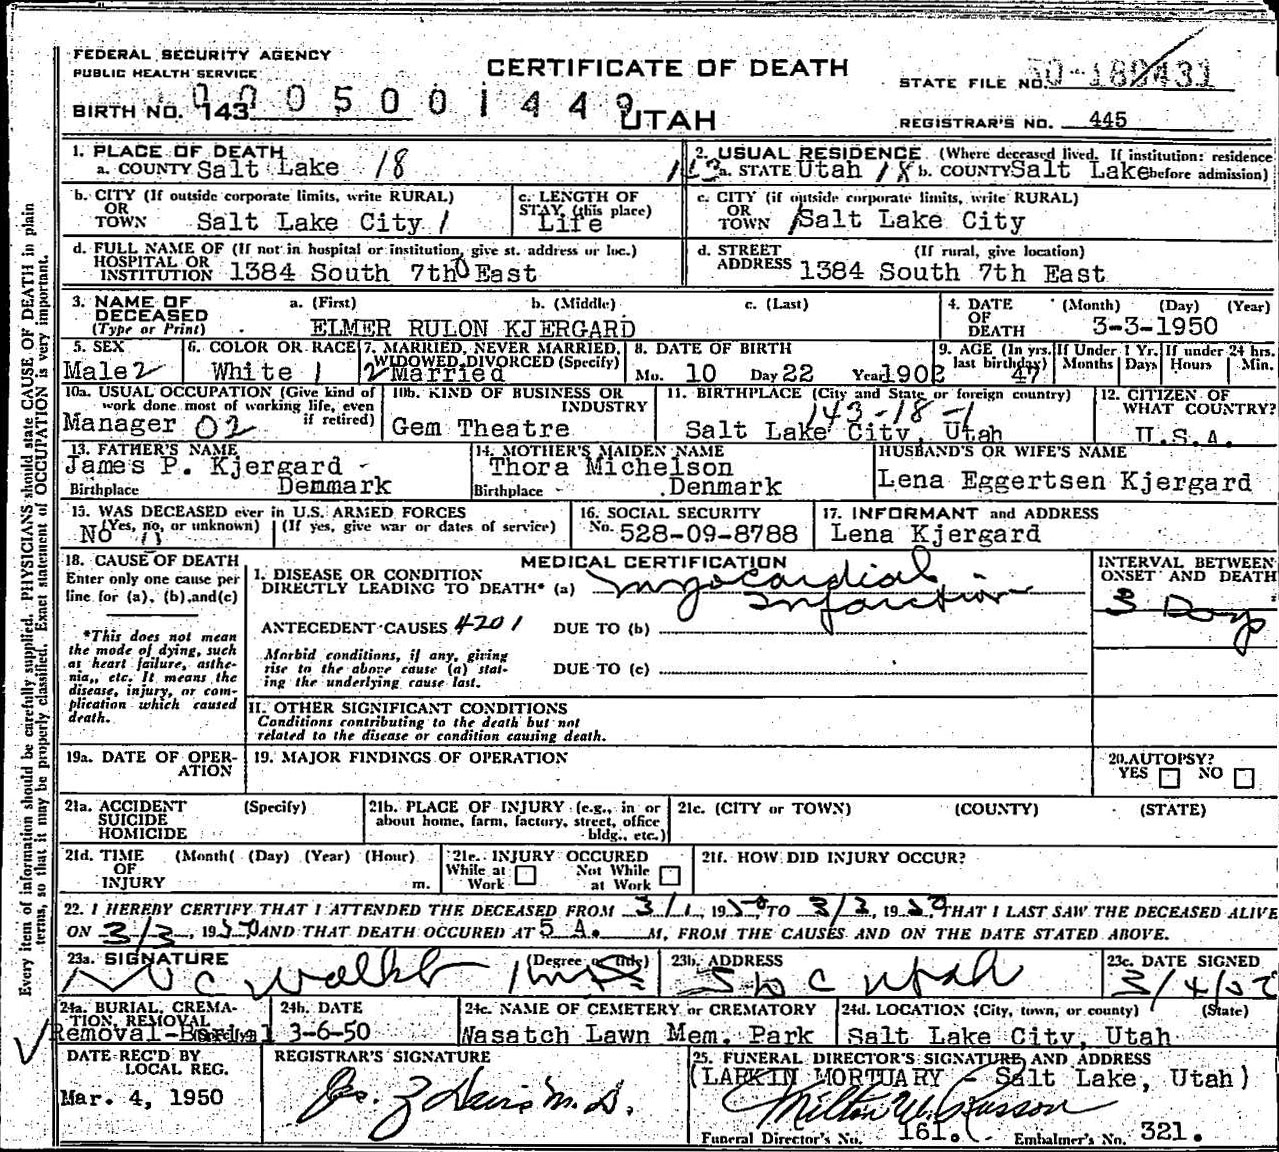 FEDERAL SECURITY AGENCY
PUBLIC HEALTH SERVICE
CERTIFICATE OF DEATH
STATE FILE NO.
BIRTH NO. 143
UTAH
REGISTRAR'S NO. 445
1. PLACE OF DEATH
a. COUNTY Salt Lake 18
2. USUAL RESIDENCE (Where deceased lived. If institution: residence before admission)
a. STATE Utah 18 b. COUNTY Salt Lake
b. CITY (If outside corporate limits, write RURAL)
OR
TOWN Salt Lake City 1
c. LENGTH OF
STAY (this place)
Life
c. CITY (if outside corporate limits, write RURAL)
OR
TOWN Salt Lake City
d. FULL NAME OF (If not in hospital or institution, give st. address or loc.)
HOSPITAL OR
INSTITUTION 1384 South 7th East
d. STREET (If rural, give location)
ADDRESS 1384 South 7th East
3. NAME OF
DECEASED
(Type or Print)
a. (First) b. (Middle) c. (Last)
ELMER RULON KJERGARD
4. DATE (Month) (Day) (Year)
OF
DEATH 3-3-1950
5. SEX
Male 2
6. COLOR OR RACE
White 1
7. MARRIED, NEVER MARRIED,
WIDOWED, DIVORCED (Specify)
2 Married
8. DATE OF BIRTH
Mo. 10 Day 22 Year 1902
9. AGE (In yrs.
last birthday) 47
If Under 1 Yr.
Months Days
If under 24 hrs.
Hours Min.
10a. USUAL OCCUPATION (Give kind of
work done most of working life, even
if retired)
Manager 02
10b. KIND OF BUSINESS OR
INDUSTRY
Gem Theatre
11. BIRTHPLACE (City and State or foreign country)
143-18-1
Salt Lake City, Utah
12. CITIZEN OF
WHAT COUNTRY?
U.S.A.
13. FATHER'S NAME
James P. Kjergard
Birthplace Denmark
14. MOTHER'S MAIDEN NAME
Thora Michelson
Birthplace Denmark
HUSBAND'S OR WIFE'S NAME
Lena Eggertsen Kjergard
15. WAS DECEASED ever in U.S. ARMED FORCES
(Yes, no, or unknown) (If yes, give war or dates of service)
No
16. SOCIAL SECURITY
No. 528-09-8788
17. INFORMANT and ADDRESS
Lena Kjergard
18. CAUSE OF DEATH
Enter only one cause per
line for (a), (b), and (c)
*This does not mean
the mode of dying, such
as heart failure, asthe-
nia, etc. It means the
disease, injury, or com-
plication which caused
death.
MEDICAL CERTIFICATION
I. DISEASE OR CONDITION
DIRECTLY LEADING TO DEATH* (a) myocardial
infarction
ANTECEDENT CAUSES 4201 DUE TO (b)
Morbid conditions, if any, giving
rise to the above cause (a) stat-
ing the underlying cause last.
DUE TO (c)
INTERVAL BETWEEN
ONSET AND DEATH
3 Days
II. OTHER SIGNIFICANT CONDITIONS
Conditions contributing to the death but not
related to the disease or condition causing death.
19a. DATE OF OPER-
ATION
19. MAJOR FINDINGS OF OPERATION
20. AUTOPSY?
YES NO
21a. ACCIDENT (Specify)
SUICIDE
HOMICIDE
21b. PLACE OF INJURY (e.g., in or
about home, farm, factory, street, office
bldg., etc.)
21c. (CITY or TOWN) (COUNTY) (STATE)
21d. TIME (Month( (Day) (Year) (Hour)
OF
INJURY m.
21e. INJURY OCCURED
While at Work
Not While at Work
21f. HOW DID INJURY OCCUR?
22. I HEREBY CERTIFY THAT I ATTENDED THE DECEASED FROM 3/1, 1950 TO 3/3, 1950, THAT I LAST SAW THE DECEASED ALIVE
ON 3/3, 1950 AND THAT DEATH OCCURED AT 5 A. M, FROM THE CAUSES AND ON THE DATE STATED ABOVE.
23a. SIGNATURE (Degree or title)
23b. ADDRESS
S L C Utah
23c. DATE SIGNED
3/4/50
24a. BURIAL, CREMA-
TION, REMOVAL
Removal-Burial
24b. DATE
3-6-50
24c. NAME OF CEMETERY or CREMATORY
Wasatch Lawn Mem. Park
24d. LOCATION (City, town, or county) (State)
Salt Lake City, Utah
DATE REC'D BY
LOCAL REG.
Mar. 4, 1950
REGISTRAR'S SIGNATURE
25. FUNERAL DIRECTOR'S SIGNATURE AND ADDRESS
(LARKIN MORTUARY - Salt Lake, Utah)
Funeral Director's No. 161. Embalmer's No. 321.
Every item of information should be carefully supplied. PHYSICIANS should state CAUSE OF DEATH in plain
terms, so that it may be properly classified. Exact statement of OCCUPATION is very important.